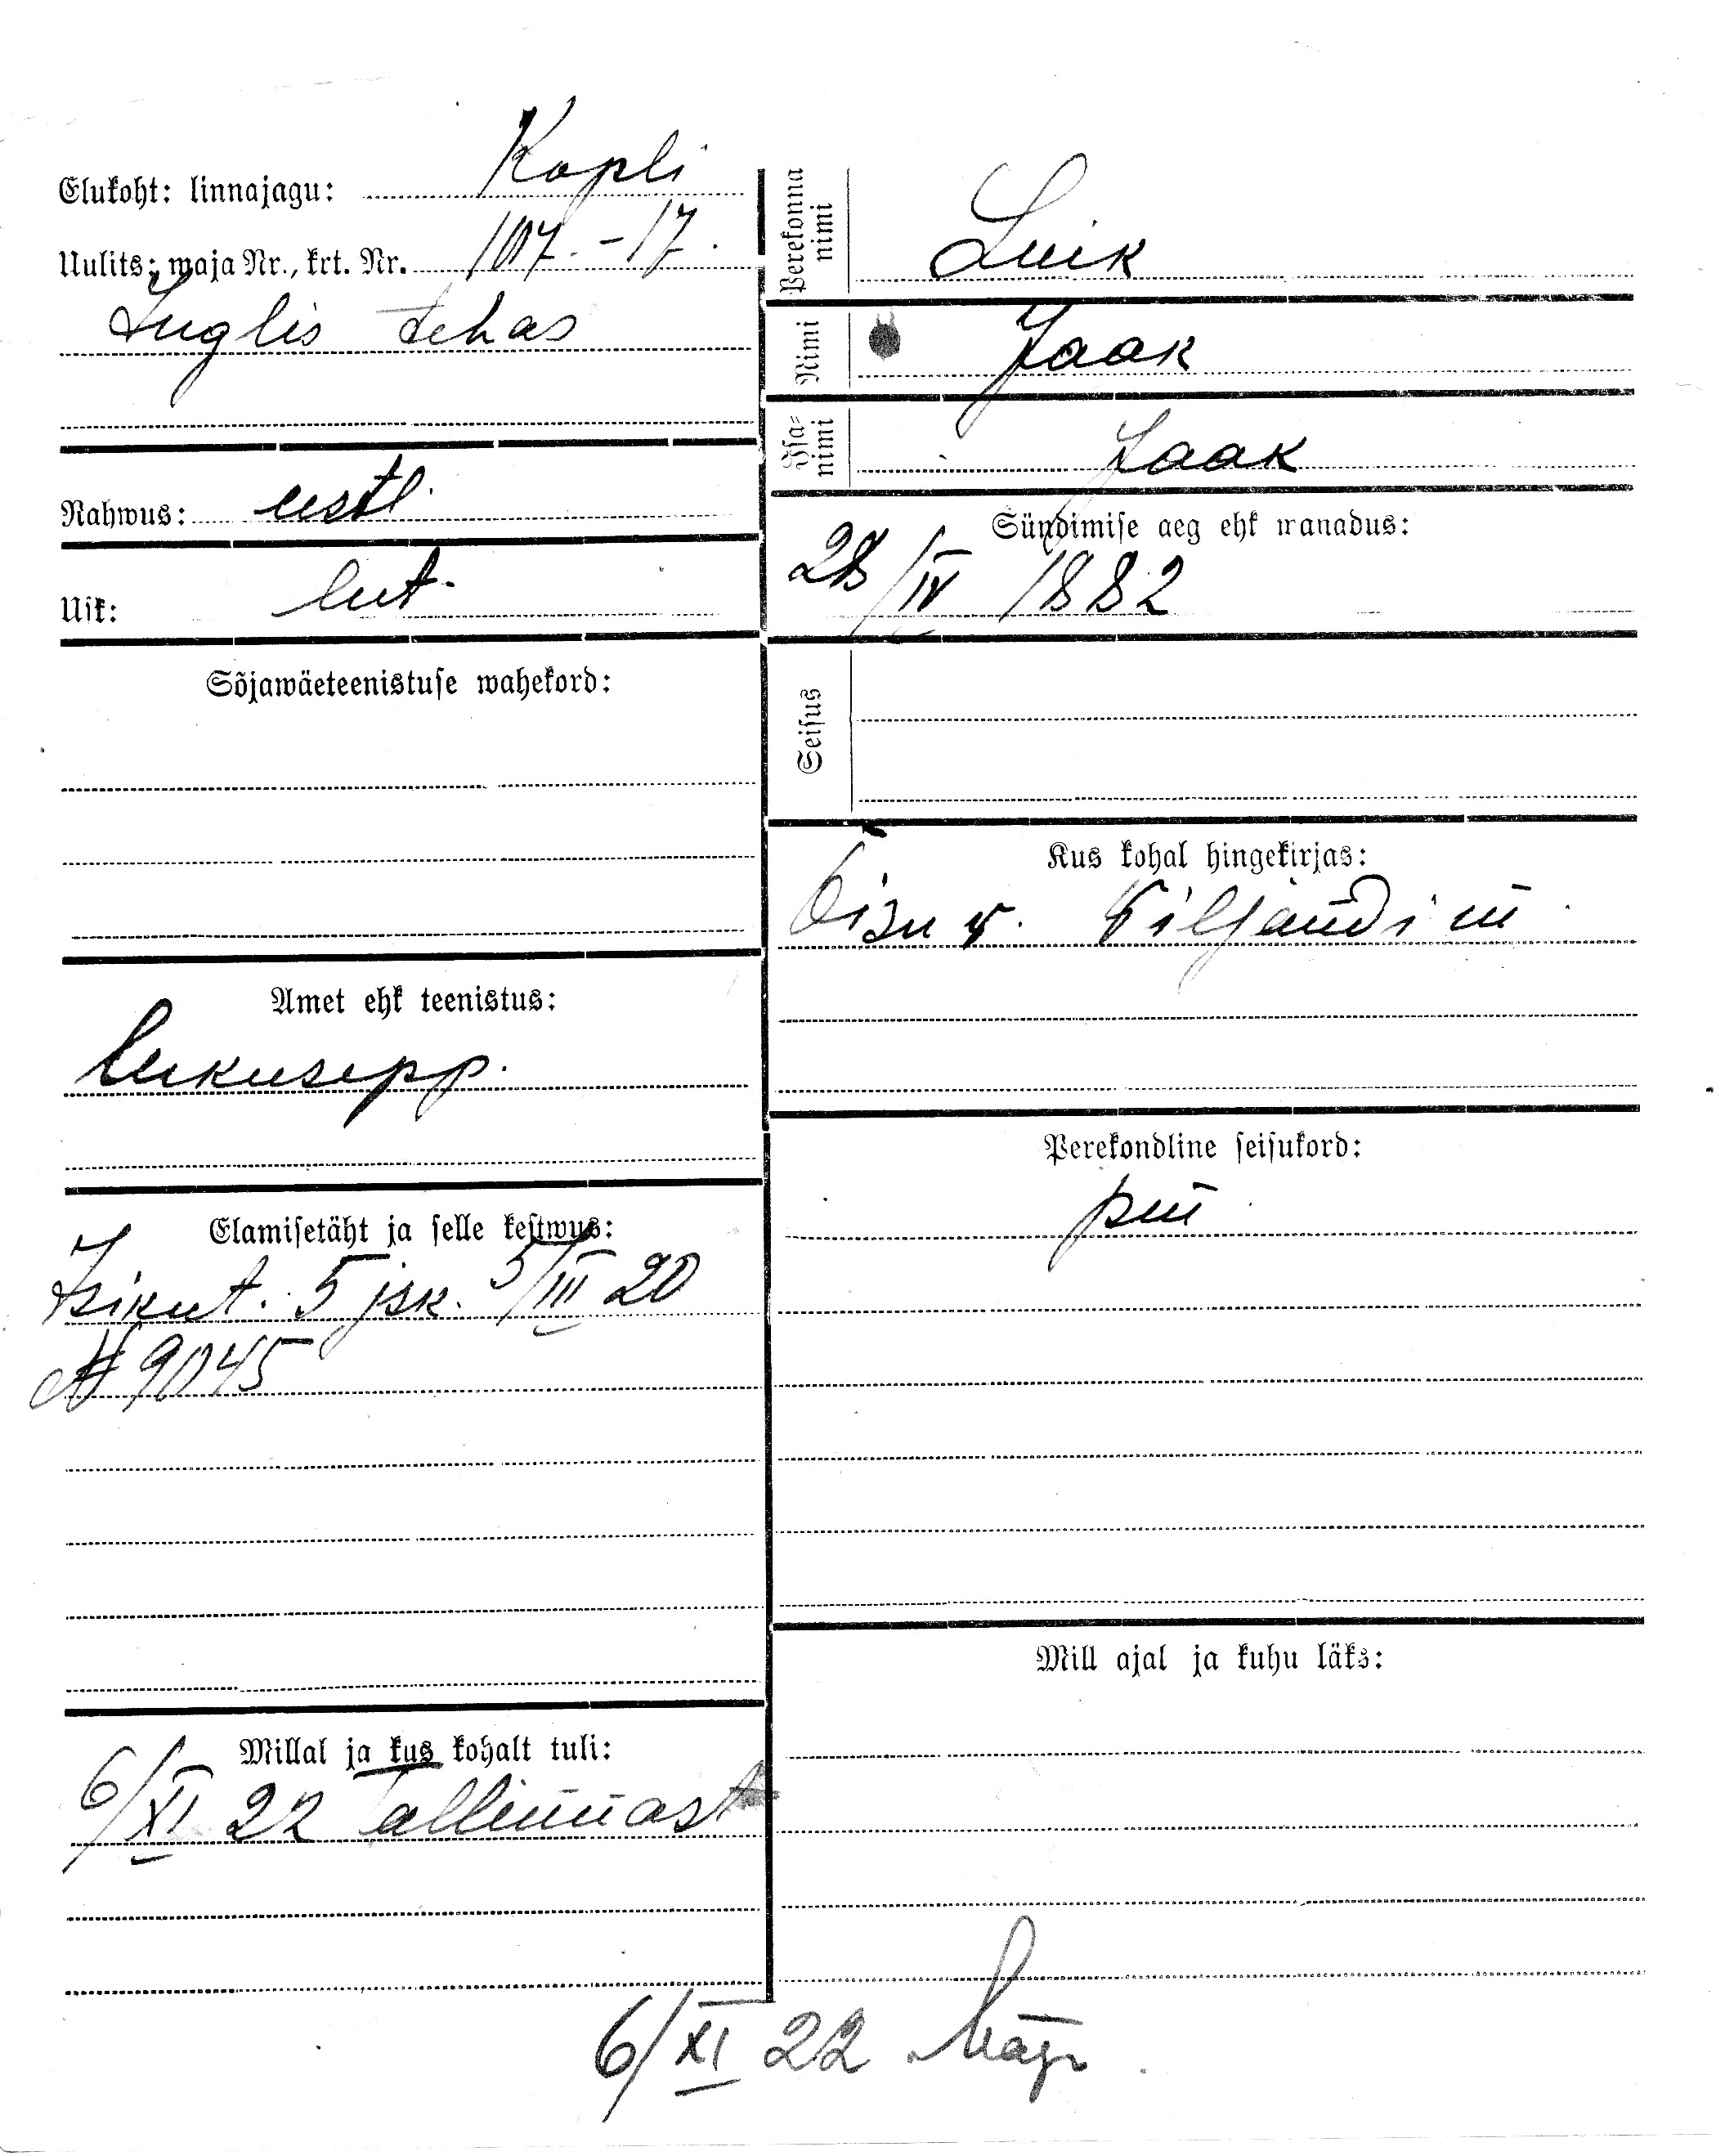 Elukoht: linnajagu: Kopli
Uulits; maja Nr., krt. Nr. 107.-17.
Inglis tehas
Rahwus: eestl.
Usk: lut.
Sõjawäeteenistuse wahekord:
Amet ehk teenistus:
lukusepp.
Elamisetäht ja selle kestwus:
Isikut. 5 jsk. 5/III 20
№ 9045
Millal ja kus kohalt tuli:
6/XI 22 Tallinnast
Perekonna nimi Luik
Nimi Jaak
Isa-nimi Jaak
Sündimise aeg ehk wanadus:
28/IV 1882
Seisus
Kus kohal hingekirjas:
Õisu v. Viljandi m.
Perekondline seisukord:
Mill ajal ja kuhu läks:
6/XI 22